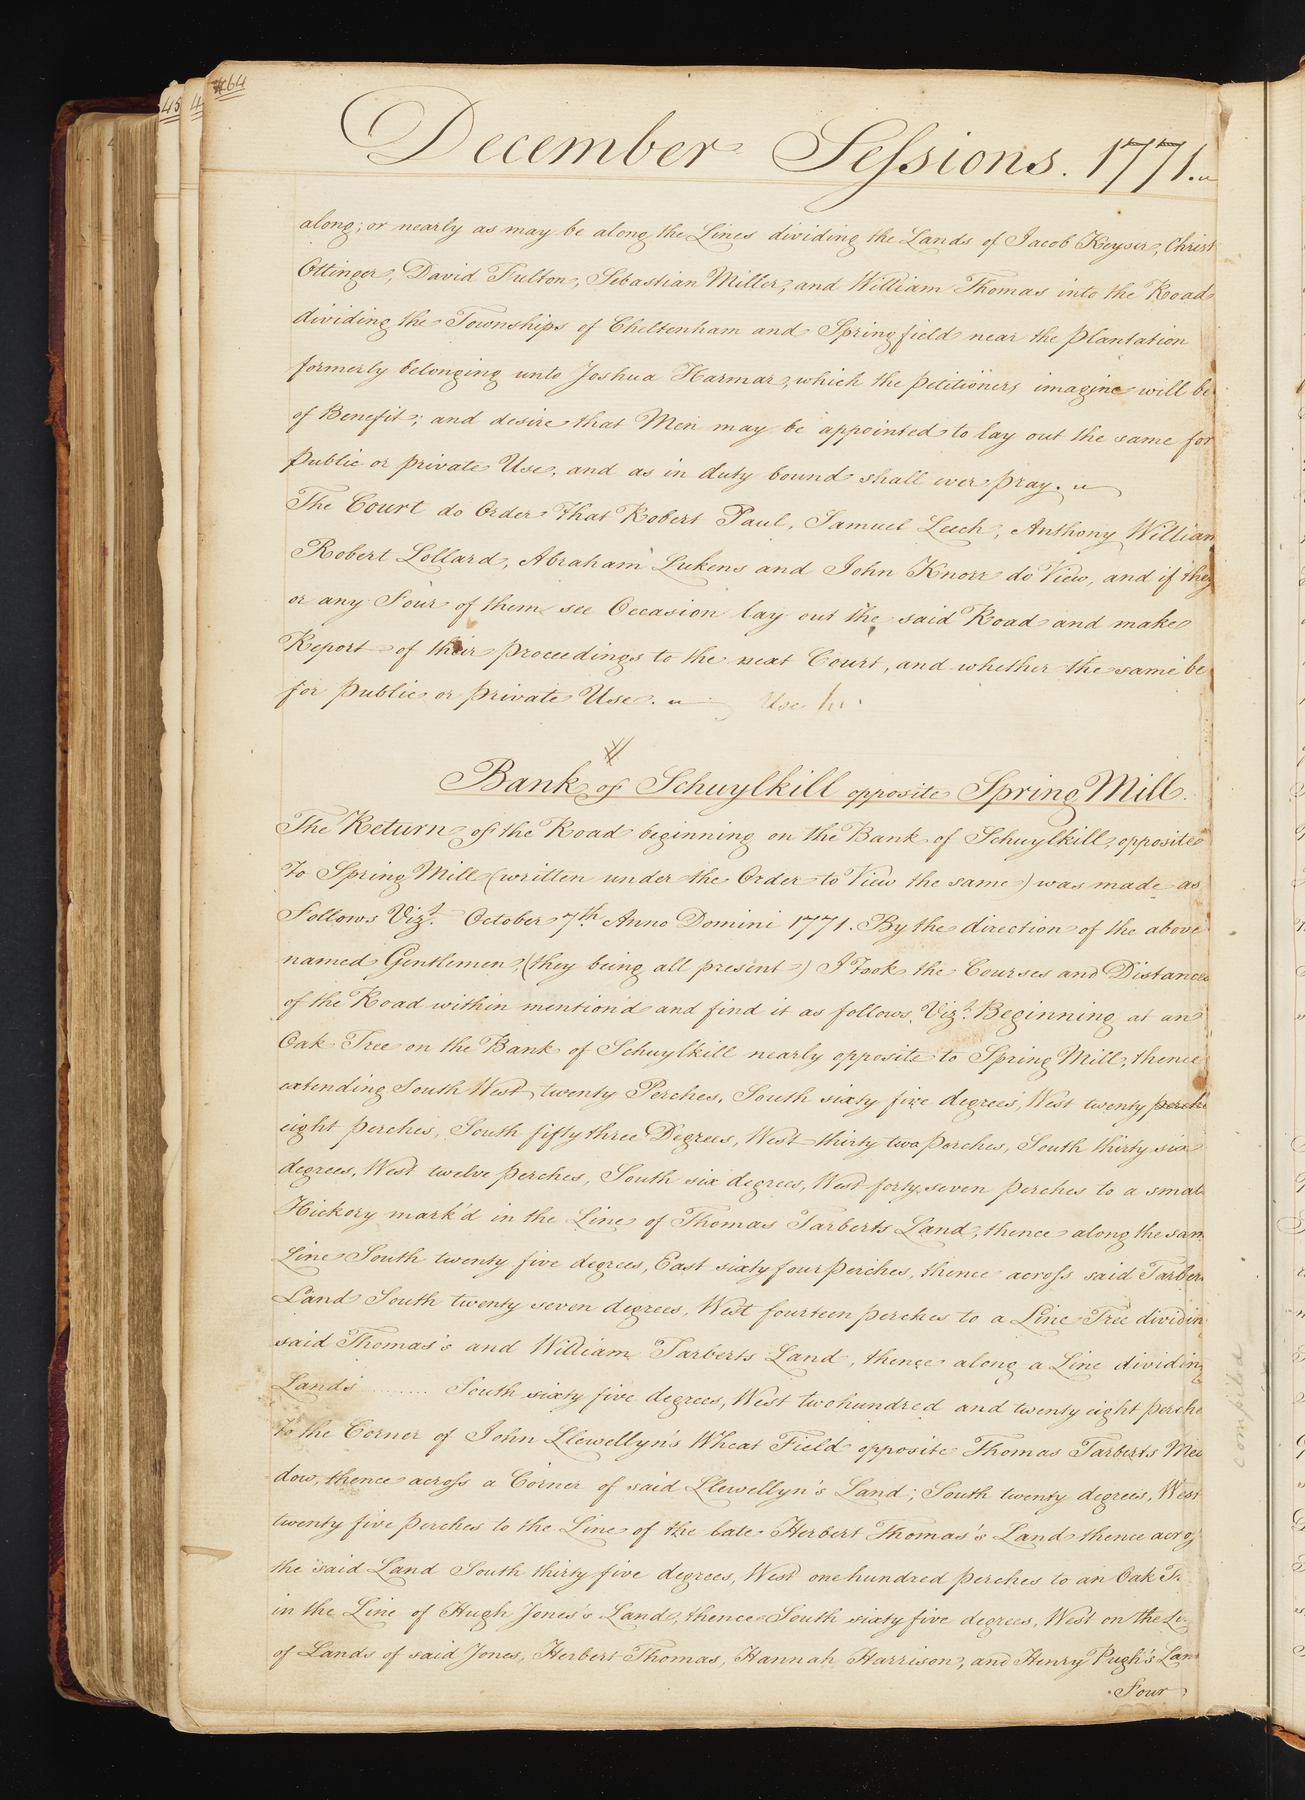 464
45
4
December Sessions. 1771.
along; or nearly as may be along the Lines dividing the Lands of Jacob Keyser, Christ
Ottinger, David Fulton, Sebastian Miller, and William Thomas into the Road
dividing the Townships of Cheltenham and Springfield near the plantation
formerly belonging unto Joshua Harmar, which the petitioners imagine will be
of Benefit; and desire that Men may be appointed to lay out the same for
public or private Use, and as in duty bound shall ever pray.
The Court do Order that Robert Paul, Samuel Leech, Anthony William
Robert Lollard, Abraham Lukens and John Knorr do View, and if they
or any Four of them see Occasion lay out the said Road and make
Report of their proceedings to the next Court, and whether the same be
for public or private Use. Use
Bank of Schuylkill opposite Spring Mill.
The Return of the Road beginning on the Bank of Schuylkill, opposite
to Spring Mill (written under the Order to View the same) was made as
Follows Vizt. October 7th Anno Domini 1771. By the direction of the above
named Gentlemen, (they being all present) I took the Courses and Distances
of the Road within mention'd and find it as follows, Vizt. Beginning at an
Oak Tree on the Bank of Schuylkill nearly opposite to Spring Mill, thence
extending South West, twenty Perches, South sixty five degrees, West twenty perche
eight perches, South fifty three Degrees, West thirty two perches, South thirty six
degrees, West twelve perches, South six degrees, West forty seven perches to a small
Hickory mark'd in the Line of Thomas Tarberts Land, thence along the sam
Line South twenty five degrees, East sixty four perches, thence across said Tarber
Land South twenty seven degrees, West fourteen perches to a Line Tree dividin
said Thomas's and William Tarberts Land, thence along a Line dividing
Lands ........ South sixty five degrees, West two hundred and twenty eight perche
to the Corner of John Llewellyn's Wheat Field opposite Thomas Tarberts Mea
dow, thence across a Corner of said Llewellyn's Land; South twenty degrees, West
twenty five perches to the Line of the late Herbert Thomas's Land thence acro
the said Land South thirty five degrees, West one hundred perches to an Oak Tr
in the Line of Hugh Jones's Land, thence South sixty five degrees, West on the Li
of Lands of said Jones, Herbert Thomas, Hannah Harrison, and Henry Pugh's Lan
Four
compild